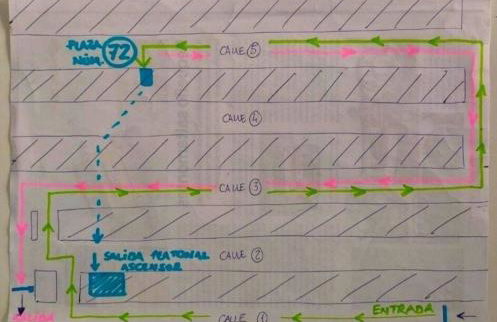 PLAZA
NÚM. 72
CALLE 5
CALLE 4
CALLE 3
SALIDA PEATONAL
ASCENSOR
CALLE 2
ENTRADA
CALLE 1
SALIDA